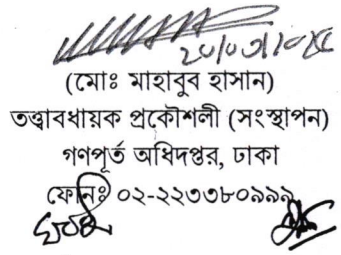 (মোঃ মাহাবুব হাসান)
তত্ত্বাবধায়ক প্রকৌশলী (সংস্থাপন)
গণপূর্ত অধিদপ্তর, ঢাকা
ফোনঃ ০২-২২৩৩৮০৯৯৯